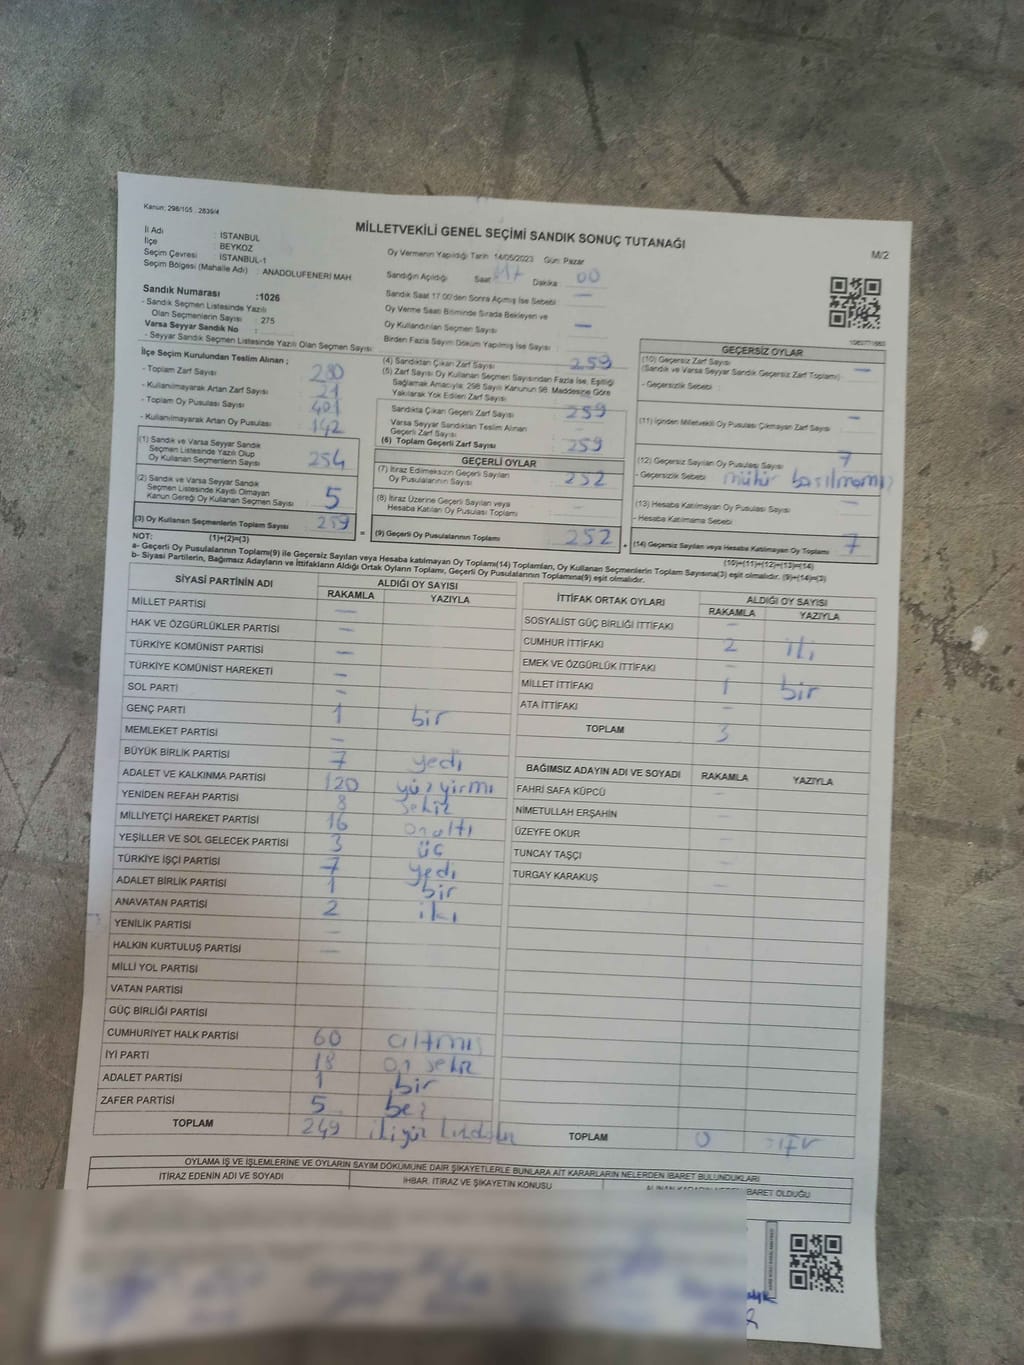 Kanun: 298/105 : 2839/4
MİLLETVEKİLİ GENEL SEÇİMİ SANDIK SONUÇ TUTANAĞI
M/2
İl Adı : İSTANBUL
İlçe : BEYKOZ
Seçim Çevresi : İSTANBUL-1
Seçim Bölgesi (Mahalle Adı) : ANADOLUFENERİ MAH
Sandık Numarası :1026
- Sandık Seçmen Listesinde Yazılı
Olan Seçmenlerin Sayısı : 275
Varsa Seyyar Sandık No :
- Seyyar Sandık Seçmen Listesinde Yazılı Olan Seçmen Sayısı
Oy Vermenin Yapıldığı Tarih 14/05/2023 Gün: Pazar
Sandığın Açıldığı Saat 17 Dakika : 00
Sandık Saat 17.00'den Sonra Açılmış İse Sebebi : —
Oy Verme Saati Bitiminde Sırada Bekleyen ve
Oy Kullandırılan Seçmen Sayısı : —
Birden Fazla Sayım Döküm Yapılmış İse Sayısı :
İlçe Seçim Kurulundan Teslim Alınan ;
- Toplam Zarf Sayısı : 280
- Kullanılmayarak Artan Zarf Sayısı : 21
- Toplam Oy Pusulası Sayısı : 401
- Kullanılmayarak Artan Oy Pusulası : 142
(1) Sandık ve Varsa Seyyar Sandık
Seçmen Listesinde Yazılı Olup
Oy Kullanan Seçmenlerin Sayısı : 254
(2) Sandık ve Varsa Seyyar Sandık
Seçmen Listesinde Kayıtlı Olmayan
Kanun Gereği Oy Kullanan Seçmen Sayısı : 5
(3) Oy Kullanan Seçmenlerin Toplam Sayısı : 259
(4) Sandıktan Çıkan Zarf Sayısı : 259
(5) Zarf Sayısı Oy Kullanan Seçmen Sayısından Fazla İse, Eşitliği
Sağlamak Amacıyla; 298 Sayılı Kanunun 98. Maddesine Göre
Yakılarak Yok Edilen Zarf Sayısı :
Sandıkta Çıkan Geçerli Zarf Sayısı : 259
Varsa Seyyar Sandıktan Teslim Alınan
Geçerli Zarf Sayısı : —
(6) Toplam Geçerli Zarf Sayısı : 259
GEÇERLİ OYLAR
(7) İtiraz Edilmeksizin Geçerli Sayılan
Oy Pusulalarının Sayısı : 252
(8) İtiraz Üzerine Geçerli Sayılan veya
Hesaba Katılan Oy Pusulası Toplamı : —
= (9) Geçerli Oy Pusulalarının Toplamı : 252 +
GEÇERSİZ OYLAR
(10) Geçersiz Zarf Sayısı
(Sandık ve Varsa Seyyar Sandık Geçersiz Zarf Toplamı) : —
- Geçersizlik Sebebi :
(11) İçinden Milletvekili Oy Pusulası Çıkmayan Zarf Sayısı : —
(12) Geçersiz Sayılan Oy Pusulası Sayısı : 7
- Geçersizlik Sebebi : mühür basılmamış
(13) Hesaba Katılmayan Oy Pusulası Sayısı : —
- Hesaba Katılmama Sebebi :
(14) Geçersiz Sayılan veya Hesaba Katılmayan Oy Toplamı : 7
NOT: (1)+(2)=(3)
(10)+(11)+(12)+(13)=(14)
a- Geçerli Oy Pusulalarının Toplamı(9) ile Geçersiz Sayılan veya Hesaba katılmayan Oy Toplamı(14) Toplamları, Oy Kullanan Seçmenlerin Toplam Sayısına(3) eşit olmalıdır. (9)+(14)=(3)
b- Siyasi Partilerin, Bağımsız Adayların ve İttifakların Aldığı Ortak Oyların Toplamı, Geçerli Oy Pusulalarının Toplamına(9) eşit olmalıdır.
SİYASİ PARTİNİN ADI ALDIĞI OY SAYISI
RAKAMLA YAZIYLA
MİLLET PARTİSİ —
HAK VE ÖZGÜRLÜKLER PARTİSİ —
TÜRKİYE KOMÜNİST PARTİSİ —
TÜRKİYE KOMÜNİST HAREKETİ —
SOL PARTİ —
GENÇ PARTİ 1 bir
MEMLEKET PARTİSİ —
BÜYÜK BİRLİK PARTİSİ 7 yedi
ADALET VE KALKINMA PARTİSİ 120 yüz yirmi
YENİDEN REFAH PARTİSİ 8 sekiz
MİLLİYETÇİ HAREKET PARTİSİ 16 on altı
YEŞİLLER VE SOL GELECEK PARTİSİ 3 üç
TÜRKİYE İŞÇİ PARTİSİ 7 yedi
ADALET BİRLİK PARTİSİ 1 bir
ANAVATAN PARTİSİ 2 iki
YENİLİK PARTİSİ —
HALKIN KURTULUŞ PARTİSİ —
MİLLİ YOL PARTİSİ
VATAN PARTİSİ
GÜÇ BİRLİĞİ PARTİSİ
CUMHURİYET HALK PARTİSİ 60 altmış
İYİ PARTİ 18 on sekiz
ADALET PARTİSİ 1 bir
ZAFER PARTİSİ 5 beş
TOPLAM 249
İTTİFAK ORTAK OYLARI ALDIĞI OY SAYISI
RAKAMLA YAZIYLA
SOSYALİST GÜÇ BİRLİĞİ İTTİFAKI —
CUMHUR İTTİFAKI 2 iki
EMEK VE ÖZGÜRLÜK İTTİFAKI —
MİLLET İTTİFAKI 1 bir
ATA İTTİFAKI —
TOPLAM 3
BAĞIMSIZ ADAYIN ADI VE SOYADI RAKAMLA YAZIYLA
FAHRİ SAFA KÜPCÜ —
NİMETULLAH ERŞAHİN —
ÜZEYFE OKUR —
TUNCAY TAŞÇI —
TURGAY KARAKUŞ —
TOPLAM 0 sıfır
OYLAMA İŞ VE İŞLEMLERİNE VE OYLARIN SAYIM DÖKÜMÜNE DAİR ŞİKAYETLERLE BUNLARA AİT KARARLARIN NELERDEN İBARET BULUNDUKLARI
İTİRAZ EDENİN ADI VE SOYADI İHBAR, İTİRAZ VE ŞİKAYETİN KONUSU İBARET OLDUĞU